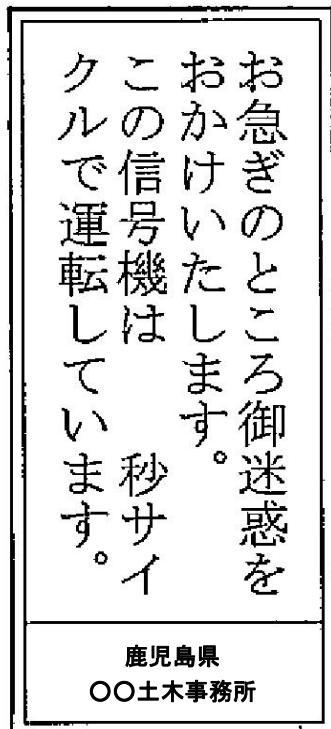 お急ぎのところ御迷惑を
おかけいたします。
この信号機は　　秒サイ
クルで運転しています。
鹿児島県
〇〇土木事務所